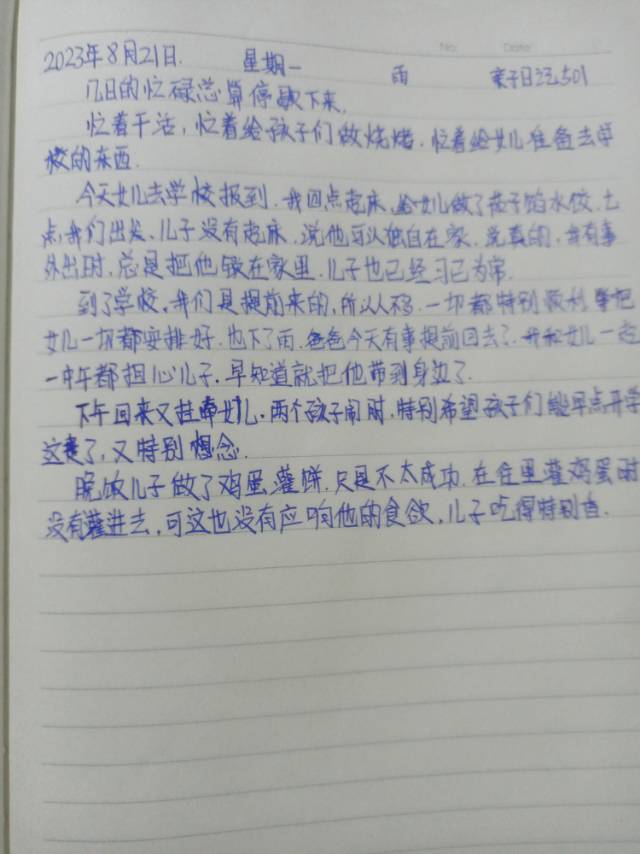 No. Date
2023年8月21日. 星期一 雨 亲子日记501
几日的忙碌总算停歇下来.
忙着干活,忙着给孩子们做烧烤.忙着给女儿准备去学
校的东西.
今天女儿去学校报到.我四点起床,给女儿做了茄子馅水饺.七
点我们出发、儿子没有起床.说他可以独自在家.说真的,我有事
外出时,总是把他锁在家里.儿子也已经习已为常.
到了学校,我们是提前来的,所以人不多.一切都特别顺利 把
女儿一切都安排好.也下了雨.爸爸今天有事提前回去了.我和女儿一起
一中午都担心儿子.早知道就把他带到身边了.
下午回来又挂牵女儿.两个孩子闹时,特别希望孩子们能早点开学
这走了,又特别想念.
晚饭儿子做了鸡蛋灌饼.只是不太成功.在往里灌鸡蛋时
没有灌进去,可这也没有应响他的食欲,儿子吃得特别香.